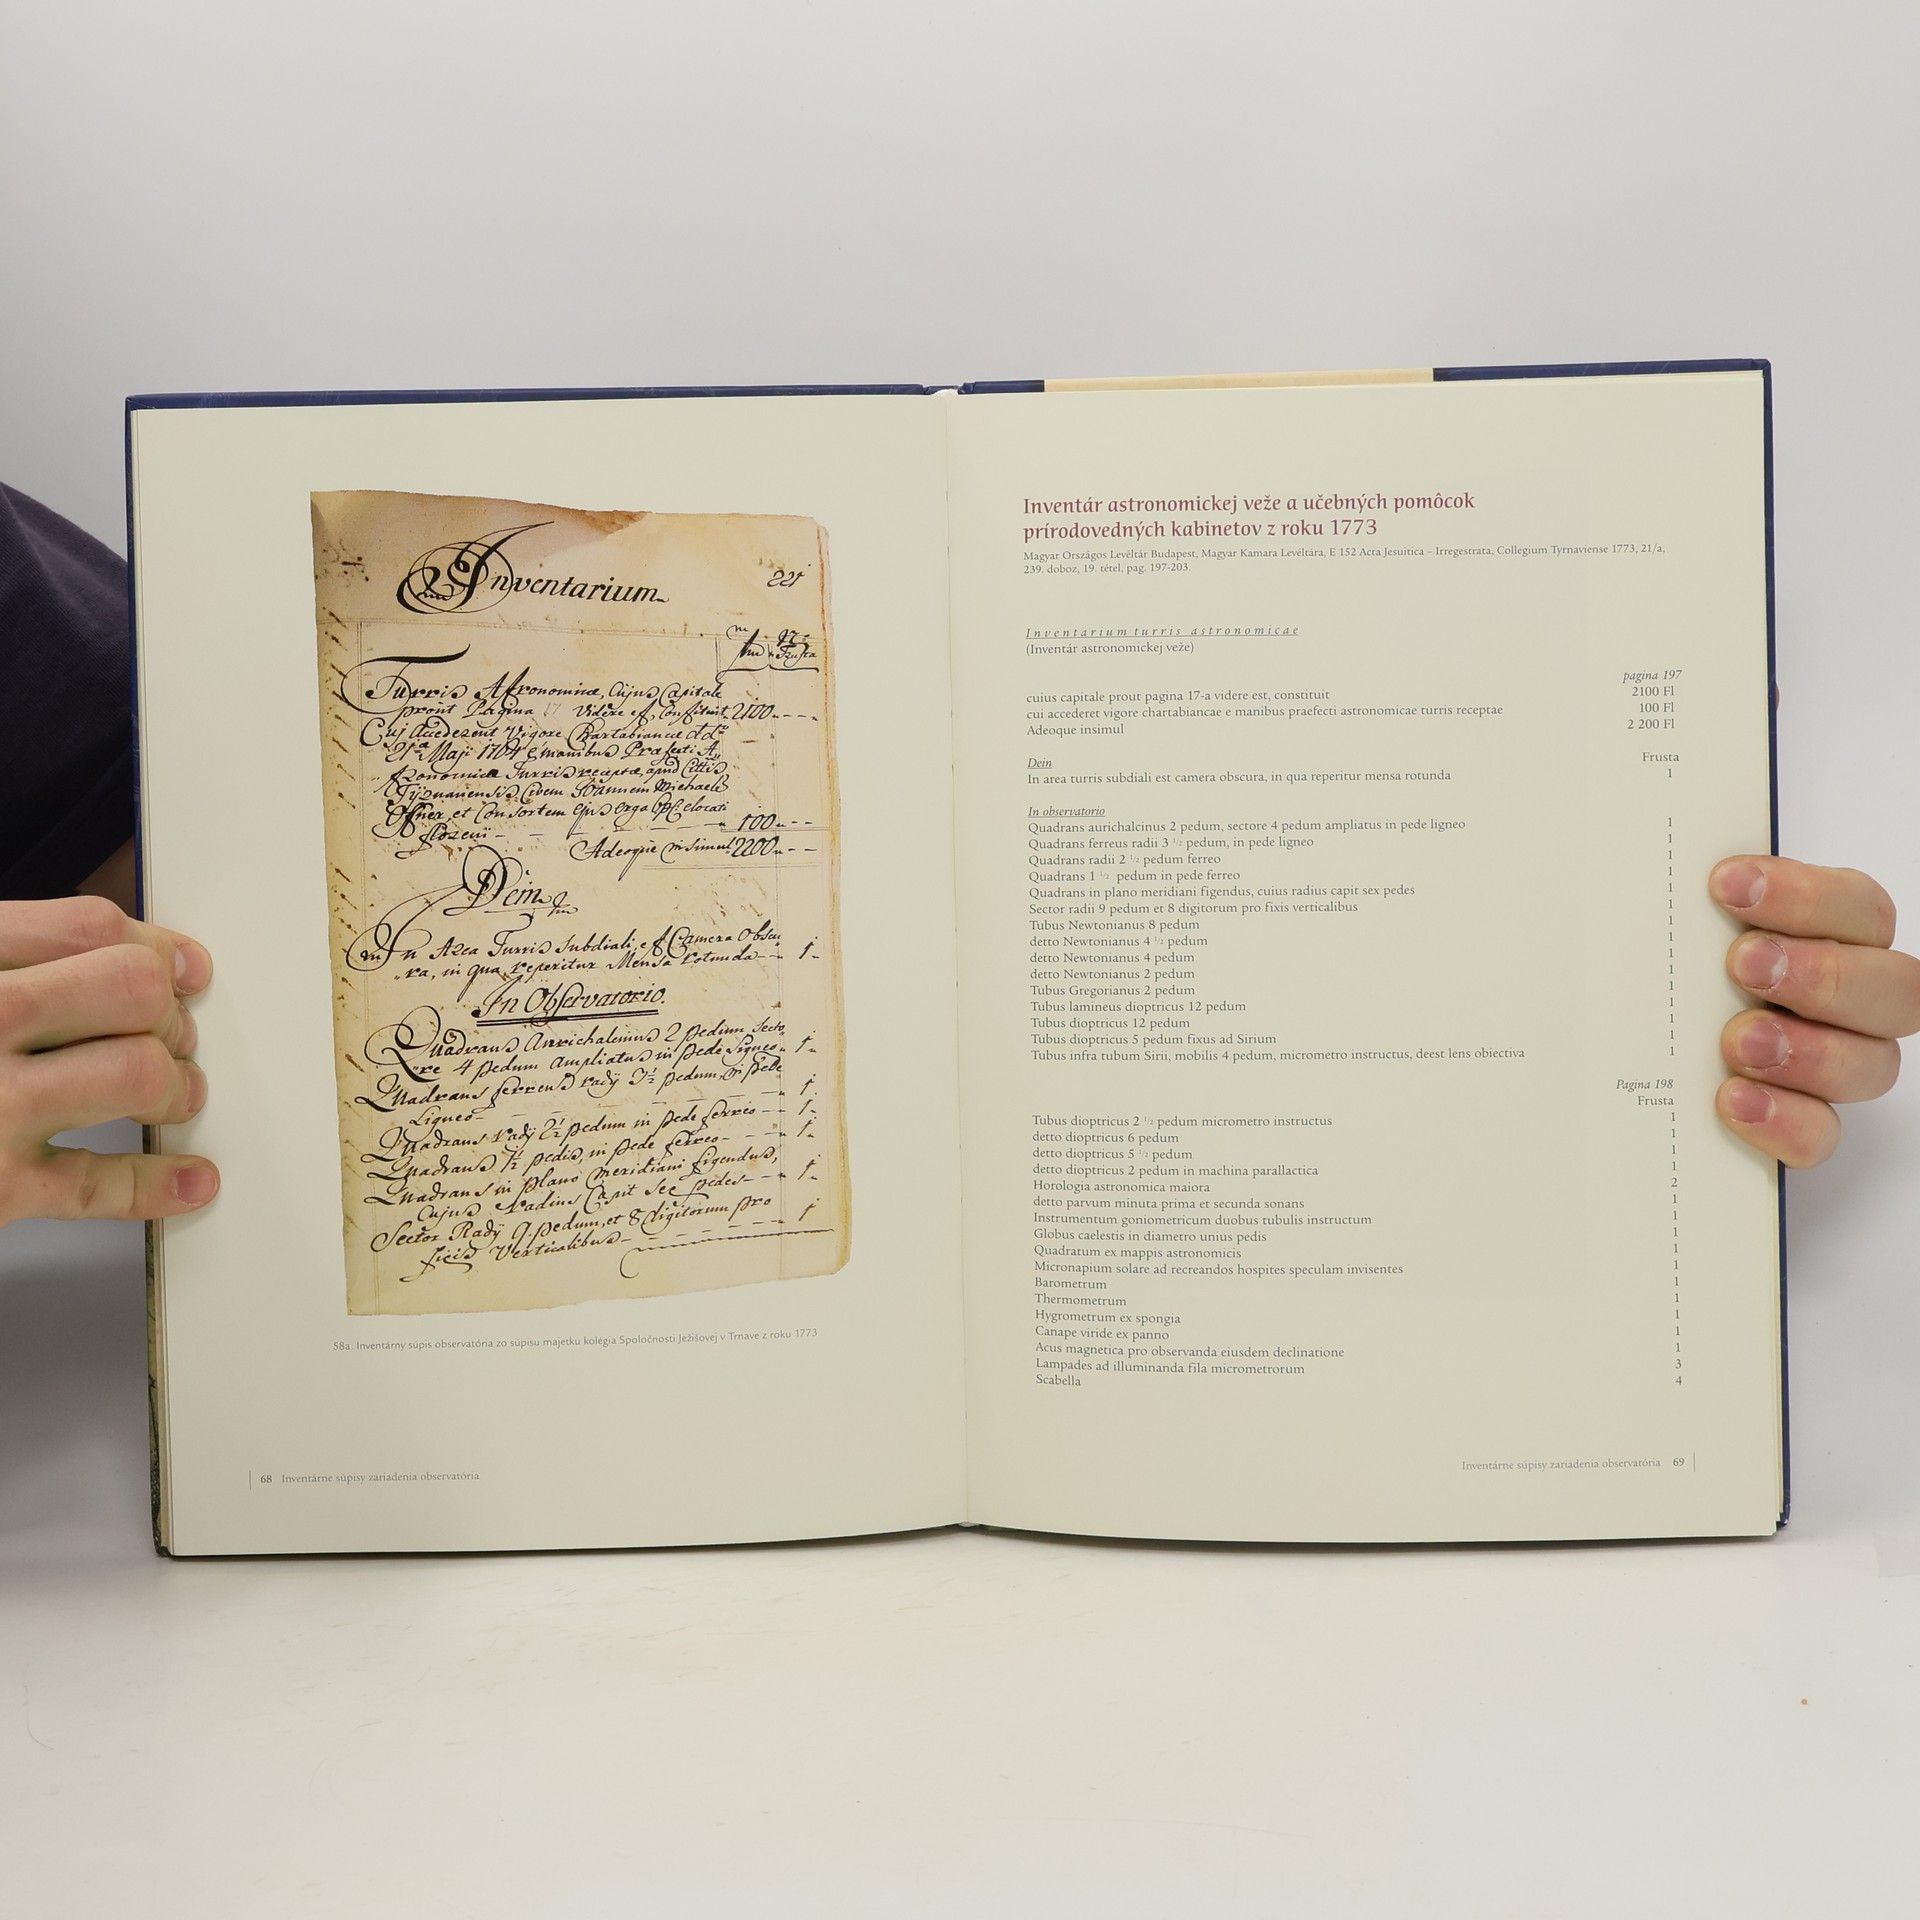 Inventarium
221
Frusta
Turris Astronomicæ, Cujus Capitale
prout Pagina 17 Videre est, Constituit 2100
Cui Accederent Vigore Chartabiancæ dd°
21ª Maji 1764 e manibus Præfecti A,
stronomicæ Turris receptæ, apud Cittis
Tyrnaviensis Civem Joannem Michaele
Ofner, et Consortem Ejus erga Obl. elocati
floreni 100
Adeoque in simul 2200
Dein
In Area Turris Subdiali, est Camera Obscu
ra, in qua reperitur Mensa rotunda 1
In Observatorio.
Quadrans Aurichalcinus 2 pedum Secto
re 4 pedum Ampliatus in pede Ligneo 1
Quadrans ferreus radij 3½ pedum, in pede
Ligneo 1
Quadrans radij 2½ pedum in pede ferreo 1
Quadrans 1½ pedis, in pede ferreo 1
Quadrans in plano meridiani figendus,
Cujus radius Capit Sex pedes 1
Sector Radij 9. pedum, et 8 digitorum pro
fixis Verticalibus 1
58a. Inventárny súpis observatória zo súpisu majetku kolégia Spoločnosti Ježišovej v Trnave z roku 1773
68 Inventárne súpisy zariadenia observatória
Inventár astronomickej veže a učebných pomôcok
prírodovedných kabinetov z roku 1773
Magyar Országos Levéltár Budapest, Magyar Kamara Levéltára, E 152 Acta Jesuitica – Irregestrata, Collegium Tyrnaviense 1773, 21/a,
239. doboz, 19. tétel, pag. 197-203.
Inventarium turris astronomicae
(Inventár astronomickej veže)
pagina 197
cuius capitale prout pagina 17-a videre est, constituit 2100 Fl
cui accederet vigore chartabiancae e manibus praefecti astronomicae turris receptae 100 Fl
Adeoque insimul 2 200 Fl
Dein Frusta
In area turris subdiali est camera obscura, in qua reperitur mensa rotunda 1
In observatorio
Quadrans aurichalcinus 2 pedum, sectore 4 pedum ampliatus in pede ligneo 1
Quadrans ferreus radii 3 1/2 pedum, in pede ligneo 1
Quadrans radii 2 1/2 pedum ferreo 1
Quadrans 1 1/2 pedum in pede ferreo 1
Quadrans in plano meridiani figendus, cuius radius capit sex pedes 1
Sector radii 9 pedum et 8 digitorum pro fixis verticalibus 1
Tubus Newtonianus 8 pedum 1
detto Newtonianus 4 1/2 pedum 1
detto Newtonianus 4 pedum 1
detto Newtonianus 2 pedum 1
Tubus Gregorianus 2 pedum 1
Tubus lamineus dioptricus 12 pedum 1
Tubus dioptricus 12 pedum 1
Tubus dioptricus 5 pedum fixus ad Sirium 1
Tubus infra tubum Sirii, mobilis 4 pedum, micrometro instructus, deest lens obiectiva 1
Pagina 198
Frusta
Tubus dioptricus 2 1/2 pedum micrometro instructus 1
detto dioptricus 6 pedum 1
detto dioptricus 5 1/2 pedum 1
detto dioptricus 2 pedum in machina parallactica 1
Horologia astronomica maiora 2
detto parvum minuta prima et secunda sonans 1
Instrumentum goniometricum duobus tubulis instructum 1
Globus caelestis in diametro unius pedis 1
Quadratum ex mappis astronomicis 1
Micronapium solare ad recreandos hospites speculam invisentes 1
Barometrum 1
Thermometrum 1
Hygrometrum ex spongia 1
Canape viride ex panno 1
Acus magnetica pro observanda eiusdem declinatione 1
Lampades ad illuminanda fila micrometrorum 3
Scabella 4
Inventárne súpisy zariadenia observatória 69